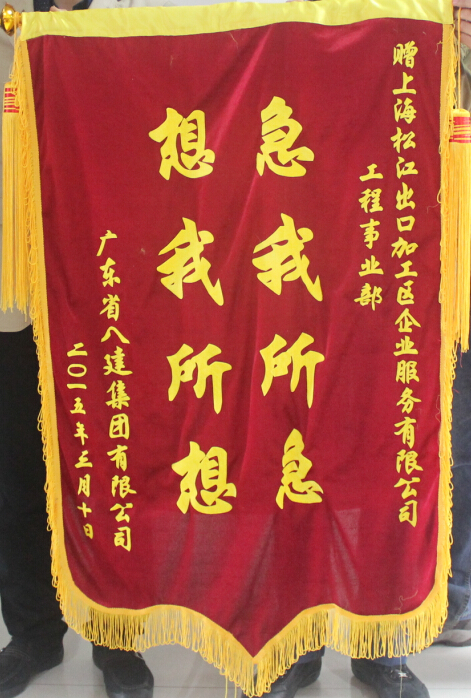 赠上海松江出口加工区企业服务有限公司
工程事业部
急我所急
想我所想
广东省八建集团有限公司
二〇一五年三月十日